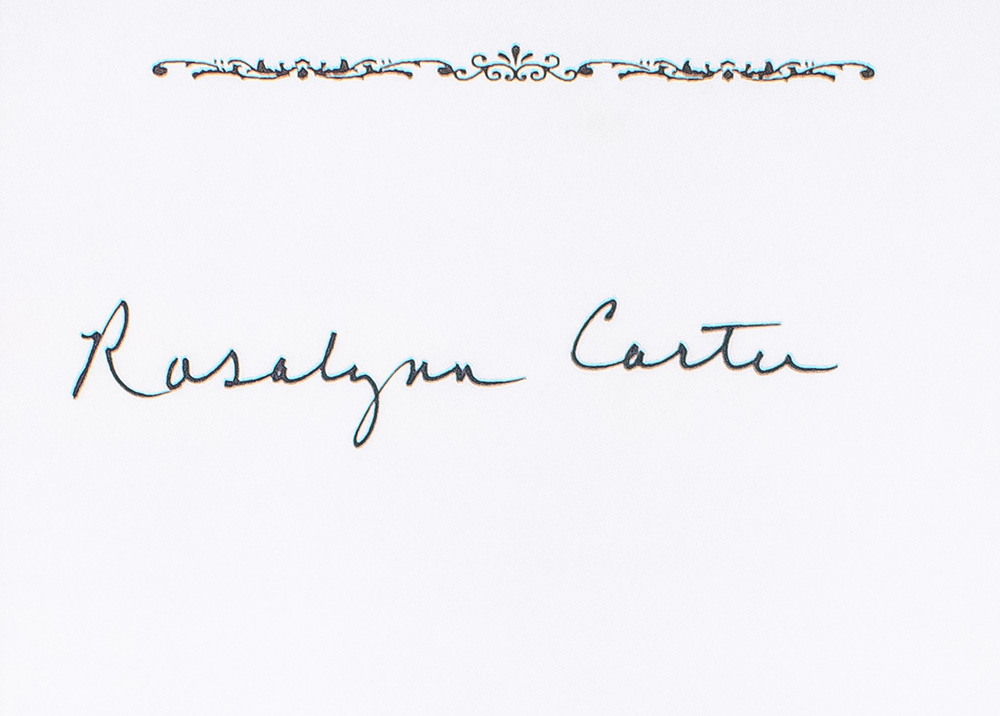 Rosalynn Carter